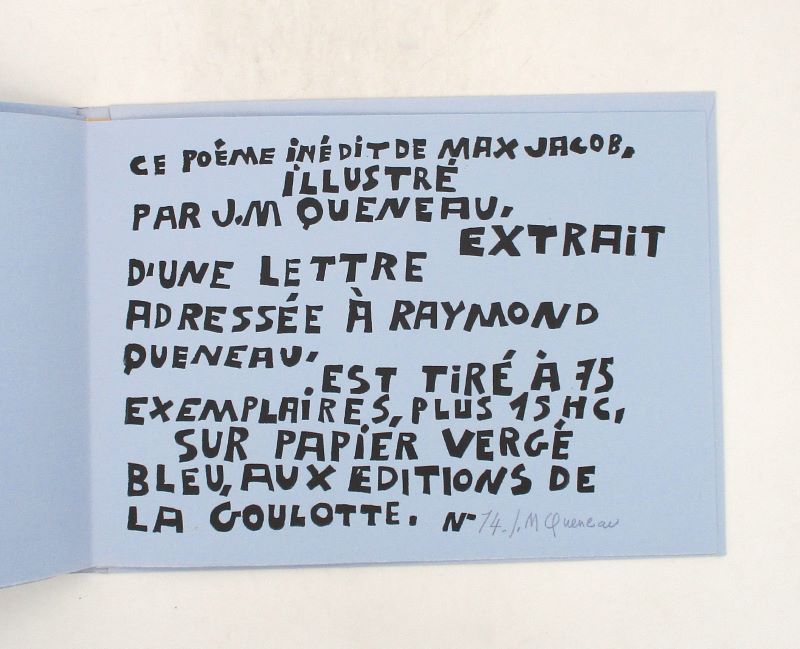 CE POÉME INÉDIT DE MAX JACOB,
ILLUSTRÉ
PAR J.M QUENEAU,
EXTRAIT
D'UNE LETTRE
ADRESSÉE À RAYMOND
QUENEAU,
EST TIRÉ À 75
EXEMPLAIRES, PLUS 15 HC,
SUR PAPIER VERGÉ
BLEU, AUX EDITIONS DE
LA GOULOTTE. N- 14. J. M Queneau